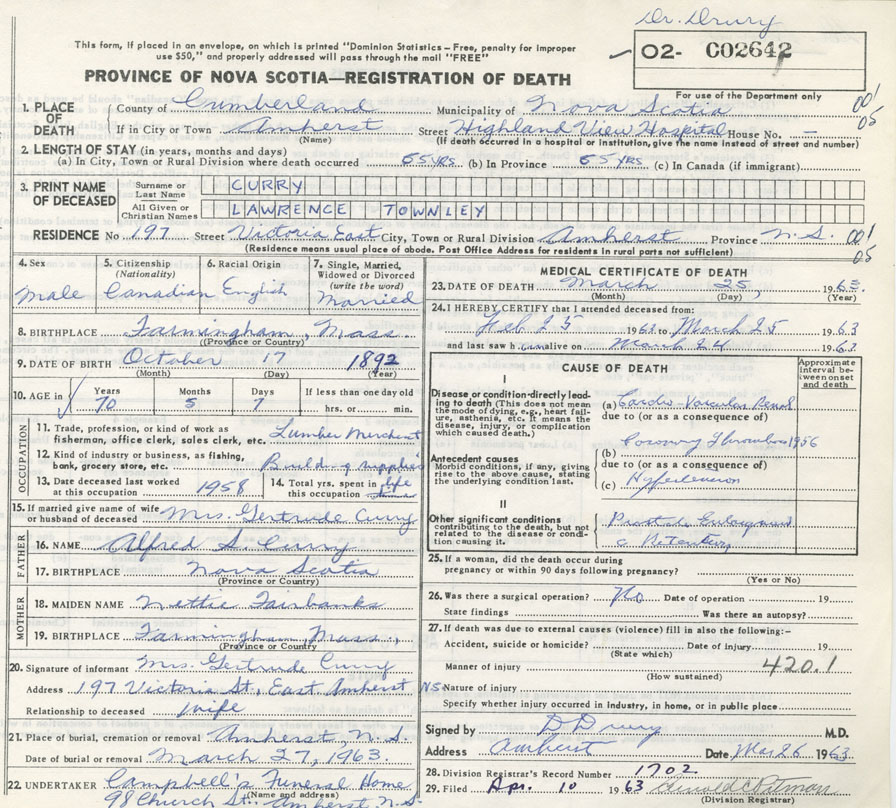 Dr. Drury
This form, if placed in an envelope, on which is printed "Dominion Statistics - Free, penalty for improper
use $50," and properly addressed will pass through the mail "FREE"
O2- C02642
For use of the Department only
PROVINCE OF NOVA SCOTIA—REGISTRATION OF DEATH
1. PLACE OF DEATH
County of Cumberland Municipality of Nova Scotia 001
If in City or Town Amherst Street Highland View Hospital House No. – 05
(Name) (If death occurred in a hospital or institution, give the name instead of street and number)
2. LENGTH OF STAY (in years, months and days)
(a) In City, Town or Rural Division where death occurred 65 yrs (b) In Province 65 yrs (c) In Canada (if immigrant)
3. PRINT NAME OF DECEASED
Surname or Last Name CURRY
All Given or Christian Names LAWRENCE TOWNLEY
RESIDENCE No 197 Street Victoria East City, Town or Rural Division Amherst Province N.S. 001
(Residence means usual place of abode. Post Office Address for residents in rural parts not sufficient) 05
4. Sex
Male
5. Citizenship (Nationality)
Canadian
6. Racial Origin
English
7. Single, Married, Widowed or Divorced (write the word)
Married
8. BIRTHPLACE Farmingham, Mass
(Province or Country)
9. DATE OF BIRTH October 17 1892
(Month) (Day) (Year)
10. AGE in Years Months Days If less than one day old
70 5 7 hrs. or min.
OCCUPATION
11. Trade, profession, or kind of work as fisherman, office clerk, sales clerk, etc. Lumber Merchant
12. Kind of industry or business, as fishing, bank, grocery store, etc. Building supplies
13. Date deceased last worked at this occupation 1958
14. Total yrs. spent in this occupation life
15. If married give name of wife or husband of deceased Mrs. Gertrude Curry
FATHER
16. NAME Alfred S. Curry
17. BIRTHPLACE Nova Scotia
(Province or Country)
MOTHER
18. MAIDEN NAME Nettie Fairbanks
19. BIRTHPLACE Farmingham, Mass.,
(Province or Country
20. Signature of informant Mrs. Gertrude Curry
Address 197 Victoria St., East Amherst NS
Relationship to deceased wife
21. Place of burial, cremation or removal Amherst, N.S.
Date of burial or removal March 27, 1963.
22. UNDERTAKER Campbell's Funeral Home
(Name and address)
98 Church St. Amherst N.S.
MEDICAL CERTIFICATE OF DEATH
23. DATE OF DEATH March 25, 1963.
(Month) (Day) (Year)
24. I HEREBY CERTIFY that I attended deceased from:
Feb 25 1963 to March 25 1963
and last saw h im alive on March 24 1963
CAUSE OF DEATH
Approximate interval between onset and death
I
Disease or condition directly leading to death (This does not mean the mode of dying, e.g., heart failure, asthenia, etc. It means the disease, injury, or complication which caused death.)
(a) Cardio Vascular Renal
due to (or as a consequence of)
Antecedent causes
Morbid conditions, if any, giving rise to the above cause, stating the underlying condition last.
(b) Coronary Thrombosis 1956
due to (or as a consequence of)
(c) Hypertension
II
Other significant conditions
contributing to the death, but not related to the disease or condition causing it.
25. If a woman, did the death occur during
pregnancy or within 90 days following pregnancy?
(Yes or No)
26. Was there a surgical operation? No Date of operation 19
State findings Was there an autopsy?
27. If death was due to external causes (violence) fill in also the following:–
Accident, suicide or homicide? Date of injury 19
(State which)
Manner of injury 420.1
(How sustained)
Nature of injury
Specify whether injury occurred in Industry, in home, or in public place
Signed by D Drury M.D.
Address Amherst Date Mar 26 1963.
28. Division Registrar's Record Number 1702
29. Filed Apr. 10 1963
(Division Registrar)